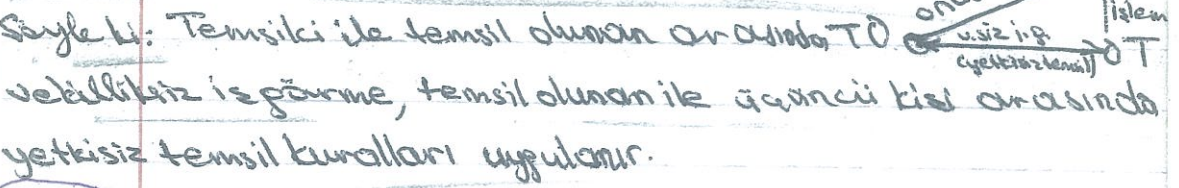 Şöyle ki: Temsilci ile temsil olunan arasında TO v.siz i.g. (yetkisiz temsil) T işlem
vekilliksiz işgörme, temsil olunan ile üçüncü kişi arasında
yetkisiz temsil kuralları uygulanır.